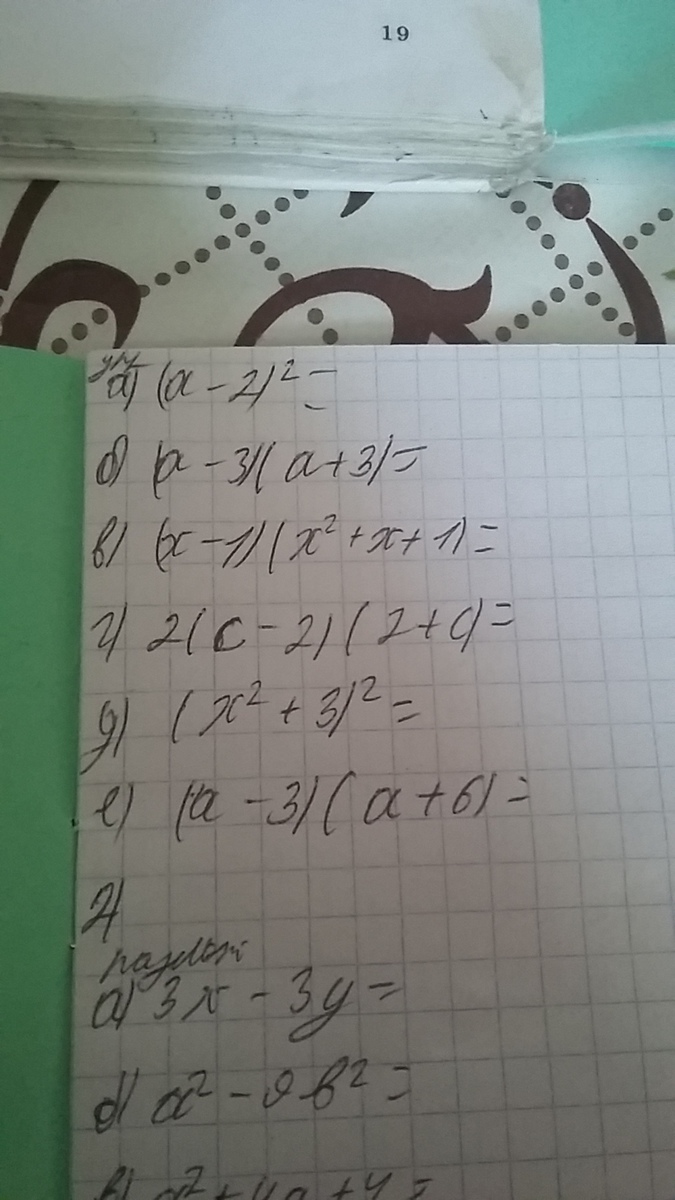 19
ум
а) (a - 2)² =
б) (a - 3)(a + 3) =
в) (x - 1)(x² + x + 1) =
г) 2(c - 2)(2 + c) =
д) (x² + 3)² =
е) (a - 3)(a + 6) =
2)
а) 3x - 3y =
б) a² - 9b² =
в) a² + 4a + 4 =